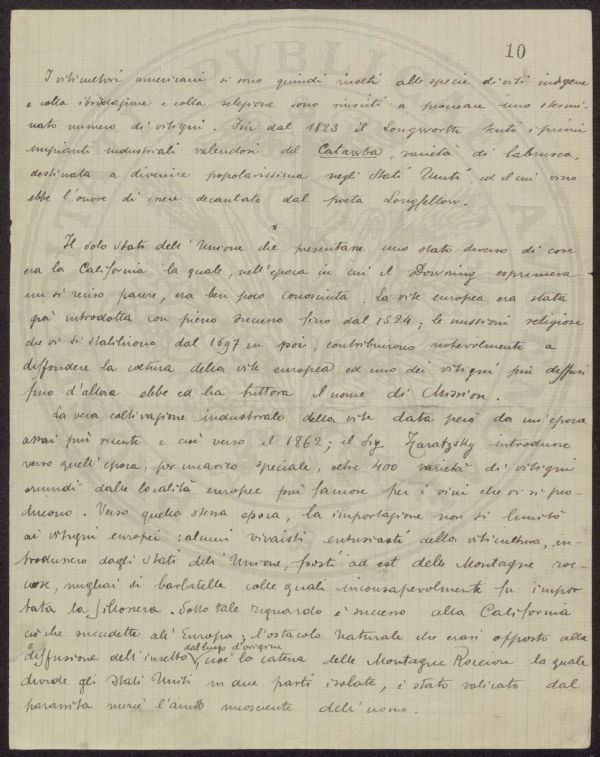 10
I viticultori americani si sono quindi rivolti alle specie di viti indigene
e colla ibridazione e colla selezione sono riusciti a procreare uno stermi-
nato numero di vitigni. Fin dal 1823 il Longworth tentò i primi
impianti industriali valendosi del Catawba, varietà di labrusca,
destinata a divenire popolarissima negli Stati Uniti, ed il cui vino
ebbe l'onore di essere decantato dal poeta Longfellow.
Il solo stato dell'Unione che presentasse uno stato diverso di cose
era la California la quale, nell'epoca in cui il Downing esprimeva
un sì reciso parere, era ben poco conosciuta. La vite europea era stata
però introdotta con pieno successo fino dal 1524; le missioni religiose
che vi si stabilirono dal 1697 in poi, contribuirono notevolmente a
diffondere la coltura della vite europea ed uno dei vitigni più diffusi
fino d'allora ebbe ed ha tuttora il nome di Mission.
La vera coltivazione industriale della vite data però da un'epoca
assai più recente e cioè verso il 1862; il Sig. Haratzsky introdusse
verso quell'epoca, per incarico speciale, oltre 400 varietà di vitigni
oriundi dalle località europee più famose per i vini che vi si pro-
ducono. Verso quella stessa epoca, la importazione non si limitò
ai vitigni europei: alcuni vivaisti entusiasti della viticultura, in-
trodussero dagli Stati dell'Unione, posti ad est delle Montagne roc-
ciose, migliaia di barbatelle colle quali inconsapevolmente fu impor-
tata la fillossera. Sotto tale riguardo è successo alla California
ciò che succedette all'Europa; l'ostacolo naturale che erasi opposto alla
diffusione dell'insetto dal luogo d'origine, cioè la catena delle Montagne Rocciose la quale
divide gli Stati Uniti in due parti isolate, è stato valicato dal
parassita mercè l'aiuto incosciente dell'uomo.